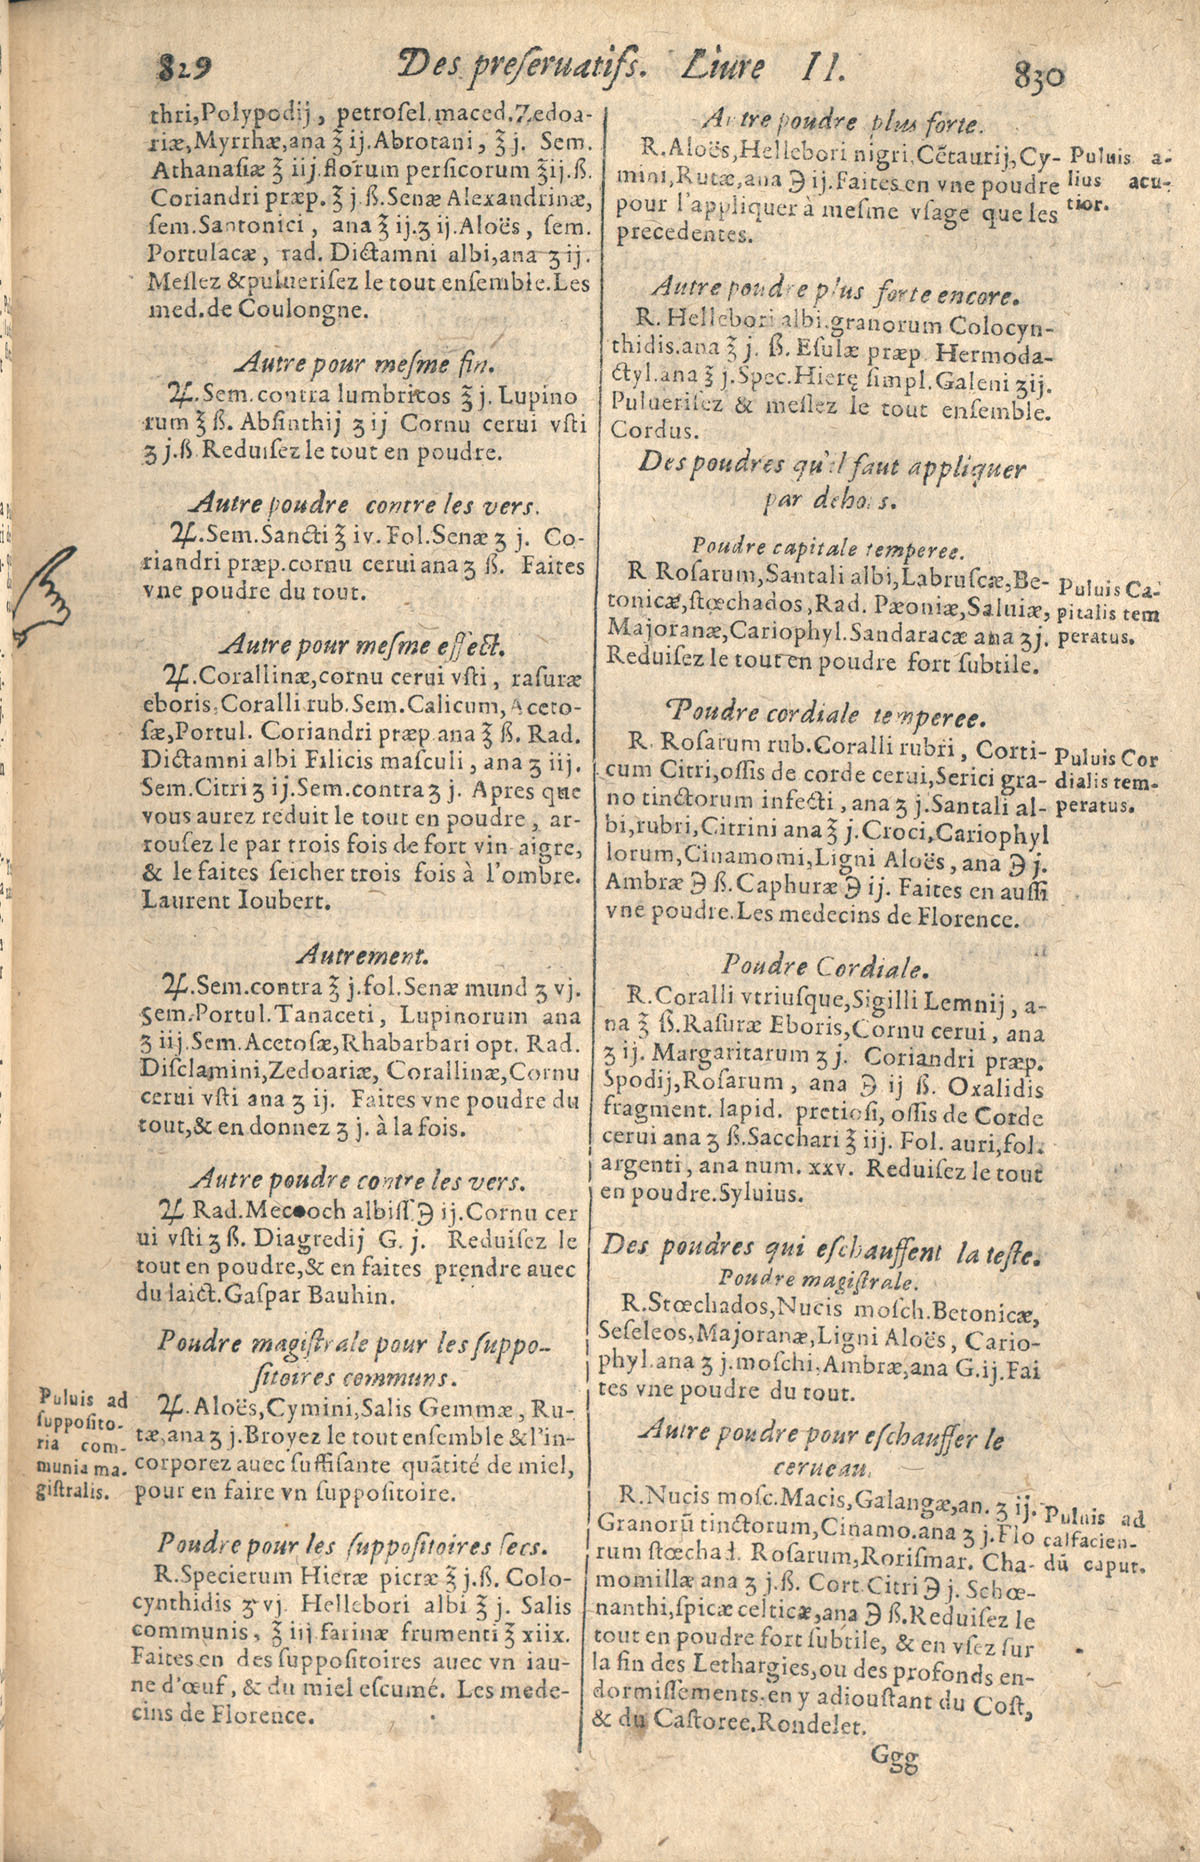 829 Des preſeruatifs. Liure II. 830
thri,Polypodij, petroſel.maced.Zedoa-
riæ,Myrrhæ,ana ℥ ij.Abrotani, ℥ j. Sem.
Athanaſiæ ℥ iij.florum perſicorum ℥ij.ß.
Coriandri præp. ℥ j.ß.Senæ Alexandrinæ,
ſem.Santonici, ana ℥ ij.ʒ ij.Aloës, ſem.
Portulacæ, rad. Dictamni albi,ana ʒ ij.
Meſlez &puluerisez le tout enſemble.Les
med.de Coulongne.
Autre pour meſme fin.
♃.Sem.contra lumbricos ℥ j. Lupino
rum ℥ ß. Abſinthij ʒ ij Cornu cerui vſti
ʒ j.ß Reduiſez le tout en poudre.
Autre poudre contre les vers.
♃.Sem.Sancti ℥ iv. Fol.Senæ ʒ j. Co-
riandri præp.cornu cerui ana ʒ ß. Faites
vne poudre du tout.
Autre pour meſme effect.
♃.Corallinæ,cornu cerui vſti, raſuræ
eboris,Coralli rub.Sem.Calicum,Aceto-
ſæ,Portul. Coriandri præp ana ℥ ß. Rad.
Dictamni albi Filicis maſculi, ana ʒ iij.
Sem.Citri ʒ ij.Sem.contra ʒ j. Apres que
vous aurez reduit le tout en poudre, ar-
rouſez le par trois fois de fort vin aigre,
& le faites ſeicher trois fois à l'ombre.
Laurent Ioubert.
Autrement.
♃.Sem.contra ℥ j.fol.Senæ mund ʒ vj.
Sem.Portul.Tanaceti, Lupinorum ana
ʒ iij.Sem.Acetoſæ,Rhabarbari opt. Rad.
Diſclamini,Zedoariæ, Corallinæ,Cornu
cerui vſti ana ʒ ij. Faites vne poudre du
tout,& en donnez ʒ j. à la fois.
Autre poudre contre les vers.
♃ Rad. albiſſ ℈ ij.Cornu cer
ui vſti ʒ ß. Diagredij G. j. Reduiſez le
tout en poudre,& en faites prendre auec
du laict.Gaſpar Bauhin.
Poudre magiſtrale pour les ſuppo-
ſitoires communs.
Puluis ad
ſuppoſito-
ria com-
munia ma.
giſtralis.
♃.Aloës,Cymini,Salis Gemmæ, Ru-
tæ,ana ʒ j.Broyez le tout enſemble &l'in-
corporez auec ſuffiſante quãtité de miel,
pour en faire vn ſuppoſitoire.
Poudre pour les ſuppoſitoires ſecs.
R.Specierum Hieræ picræ ℥ j.ß. Colo-
cynthidis ʒ vj Hellebori albi ℥ j. Salis
communis, ℥ iij farinæ frumenti ℥ xiix.
Faites en des ſuppoſitoires auec vn iau-
ne d'œuf, & du miel eſcumé. Les mede-
cins de Florence.
Autre poudre plus forte.
R.Aloës,Hellebori nigri,Cẽtaurij,Cy-
mini,Rutæ,ana ℈ ij.Faites en vne poudre
pour l'appliquer à meſme vſage que les
precedentes.
Puluis a-
lius acu-
tior.
Autre poudre plus forte encore.
R. Hellebori albi.granorum Colocyn-
thidis.ana ℥ j. ß. Eſulæ præp Hermoda-
ctyl.ana ℥ j.Spec.Hieræ ſimpl.Galeni ʒij.
Pulueriſez & meſlez le tout enſemble.
Cordus.
Des poudres qu'il faut appliquer
par dehors.
Poudre capitale temperee.
R Roſarum,Santali albi,Labruſcæ,Be-
tonicæ,ſtœchados,Rad. Pæoniæ,Saluiæ,
Majoranæ,Cariophyl.Sandaracæ ana ʒj.
Reduiſez le tout en poudre fort ſubtile.
Puluis Ca-
pitalis tem
peratus.
Poudre cordiale temperee.
R. Roſarum rub.Coralli rubri, Corti-
cum Citri,oſſis de corde cerui,Serici gra-
no tinctorum infecti, ana ʒ j.Santali al-
bi,rubri,Citrini ana ℥ j.Croci,Cariophyl
lorum,Cinamomi,Ligni Aloës, ana ℈ j.
Ambræ ℈ ß.Caphuræ ℈ ij. Faites en auſſi
vne poudre.Les medecins de Florence.
Puluis Cor
dialis tem-
peratus.
Poudre Cordiale.
R.Coralli vtriuſque,Sigilli Lemnij, a-
na ℥ ß.Raſuræ Eboris,Cornu cerui, ana
ʒ ij. Margaritarum ʒ j. Coriandri præp.
Spodij,Roſarum, ana ℈ ij ß. Oxalidis
fragment. lapid. pretioſi, oſſis de Corde
cerui ana ʒ ß.Sacchari ℥ iij. Fol. auri,fol.
argenti, ana num. xxv. Reduiſez le tout
en poudre.Syluius.
Des poudres qui eſchauffent la teſte.
Poudre magiſtrale.
R.Stœchados,Nucis moſch.Betonicæ,
Seſeleos,Majoranæ,Ligni Aloës, Cario-
phyl.ana ʒ j.moſchi,Ambræ,ana G.ij.Fai
tes vne poudre du tout.
Autre poudre pour eſchauffer le
cerueau.
R.Nucis moſc.Macis,Galangæ,an. ʒ ij.
Granorũ tinctorum,Cinamo.ana ʒ j.Flo
rum ſtœchad. Roſarum,Roriſmar. Cha-
momillæ ana ʒ j.ß. Cort Citri ℈ j. Schœ-
nanthi,ſpicæ celticæ,ana ℈ ß.Reduiſez le
tout en poudre fort ſubtile, & en vſez ſur
la fin des Lethargies,ou des profonds en-
dormiſſements.en y adiouſtant du Coſt,
& du Caſtoree.Rondelet.
Puluis ad
calfacien-
dũ caput.
Ggg